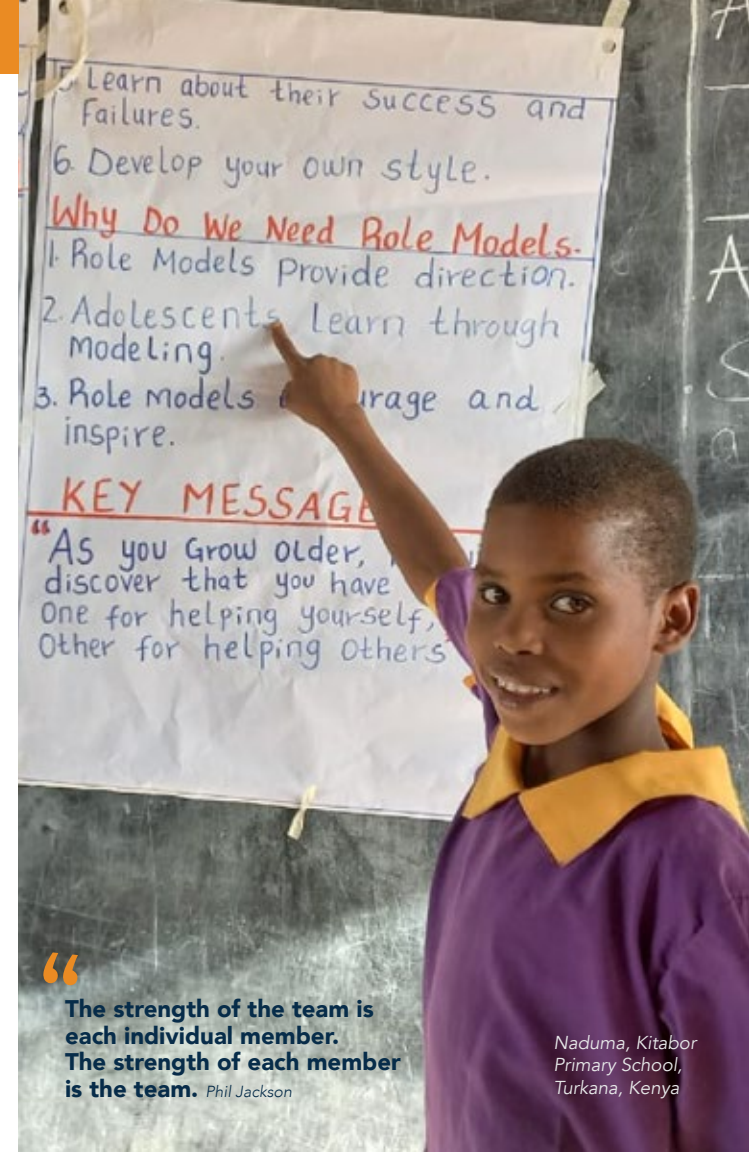 5. Learn about their success and
Failures.
6. Develop your own style.
Why Do We Need Role Models.
1. Role Models Provide direction.
2. Adolescents Learn through
Modeling.
3. Role models and
inspire.
KEY MESSAGE
"As you Grow older,
discover that you have
One for helping yourself,
Other for helping Others"
A
A
S
a
“
The strength of the team is
each individual member.
The strength of each member
is the team. Phil Jackson
Naduma, Kitabor
Primary School,
Turkana, Kenya